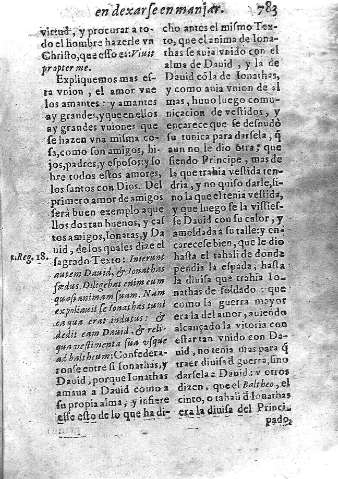 en dexarse en manjar. 783
virtud, y procurar a to-
do el hombre hazerle vn
Christo, que esso es: Viuit
propter me.
Expliquemos mas es-
ta vnion, el amor vne
los amantes: y amantes
ay grandes, y que en ellos
ay grandes vniones que
se hazen vna misma co-
sa, como son amigos, hi-
jos, padres, y esposos: y so-
bre todos estos amores,
los santos con Dios. Del
primero amor de amigos
será buen exemplo aque
llos dos tan buenos, y cas
tos amigos, Ionatas, y Da
uid, de los quales dize el
1. Reg. 18.
sagrado Texto: Inierunt
autem Dauid, & Ionathas
fœdus. Diligebat enim eum
quasi animam suam. Nam
expoliauit se Ionathas tuni
ca qua erat indutus: &
dedit eam Dauid, & reli-
qua vestimenta sua vsque
ad baltheum: Confedera-
ronse entre si Ionathas, y
Dauid, porque Ionathas
amaua a Dauid como a
su propia alma, y infiere
esse esto de lo que ha di-
cho antes el mismo Tex-
to, que el anima de Iona-
thas se auia vnido con el
alma de Dauid, y la de
Dauid cō la de Ionathas,
y como auia vnion de al
mas, huuo luego comu-
nicacion de vestidos, y
encarece que se desnudò
su tunica para darsela, q̃
aun no le dio otra: que
siendo Principe, mas de
la que trahia vestida ten-
dria, y no quiso darle, si-
no la que el tenia vestida,
y que luego se la visties-
se Dauid con su calor, y
amoldada a su talle: y en-
carece se bien, que le dio
hasta el tahali de donde
pendia la espada, hasta
la diuisa que trahia Io-
nathas de soldado: que
como la guerra mayor
era la del amor, auiendo
alcançado la vitoria con
estar tan vnido con Da-
uid, no tenia mas para q̃
traer diuisa d̃ guerra, sino
darsela a Dauid: y otros
dizen, que el Baltheo, el
cinto, o tahali d̃ Ionathas
era la diuisa del Princi-
pado,